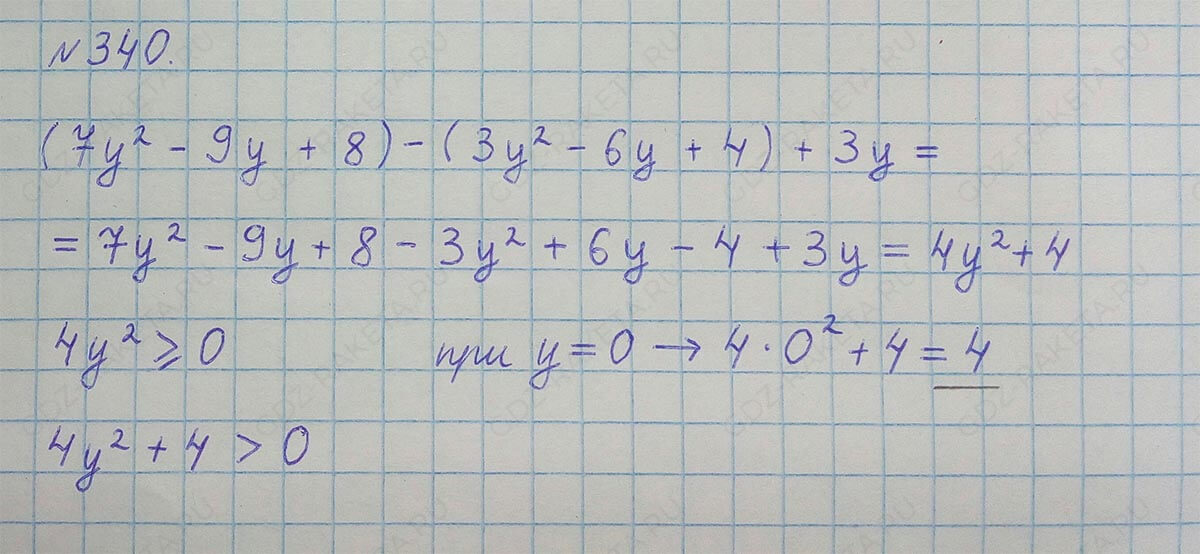 №340.
(7y² - 9y + 8) - (3y² - 6y + 4) + 3y =
= 7y² - 9y + 8 - 3y² + 6y - 4 + 3y = 4y² + 4
4y² ⩾ 0 при y = 0 → 4 · 0² + 4 = 4
4y² + 4 > 0